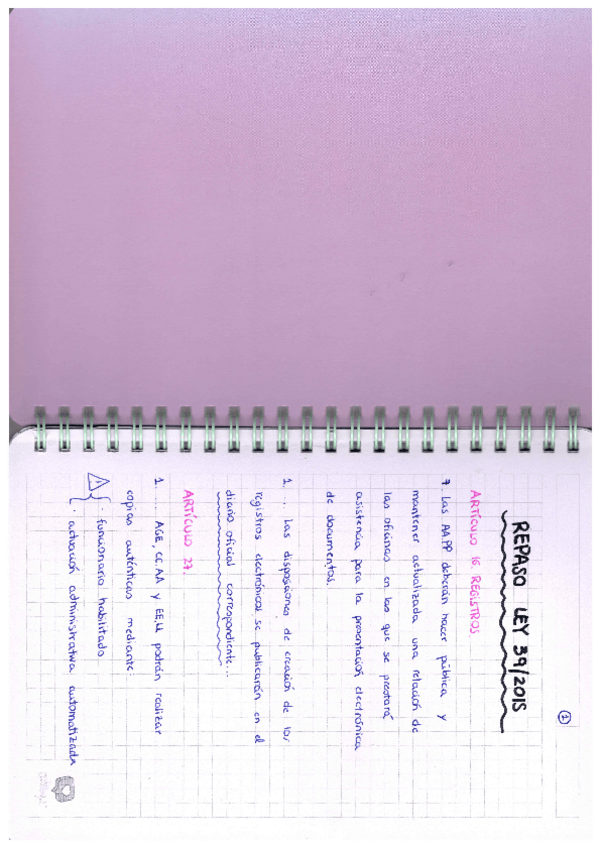 1
REPASO LEY 39/2015
ARTÍCULO 16. REGISTROS.
7. Las AA.PP deberán hacer pública y
mantener actualizada una relación de
las oficinas en las que se prestará
asistencia para la presentación electrónica
de documentos.
1. ... Las disposiciones de creación de los
registros electrónicos se publicarán en el
diario oficial correspondiente...
ARTÍCULO 27.
1. ... AGE, CC.AA y EE.LL podrán realizar
copias auténticas mediante:
· funcionario habilitado.
· actuación administrativa automatizada